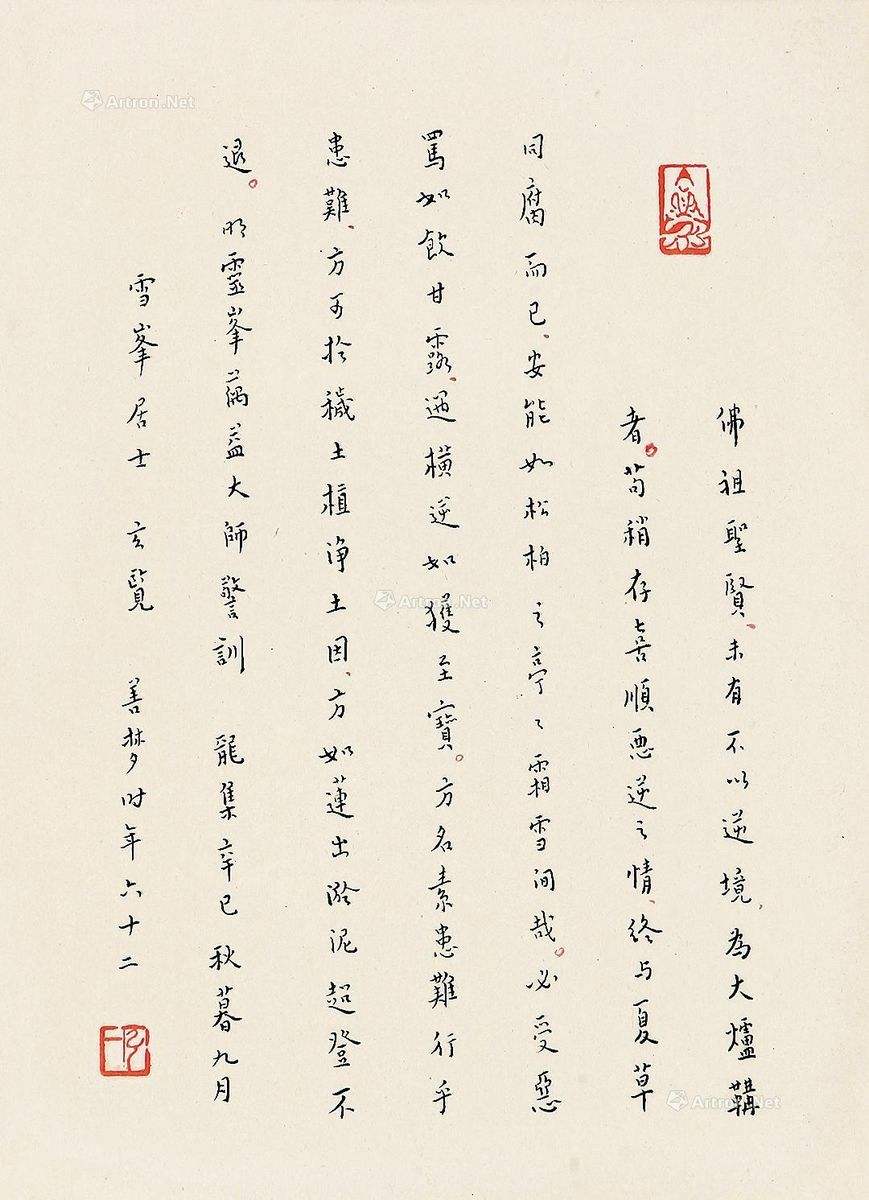 佛祖聖賢、未有不以逆境、為大爐韛
者。苟稍存喜順惡逆之情、終与夏草
同腐而已、安能如松柏之亭〻霜雪间哉。必受惡
罵如飲甘露、遇橫逆如獲至寶。方名素患難行乎
患難、方可於穢土植淨土因、方如蓮出淤泥超登不
退。明靈峯蕅益大師警訓 龍集辛巳秋暮九月
雪峯居士 玄覽 善梦时年六十二
Artron.Net
Artron.Net
Artron.Net